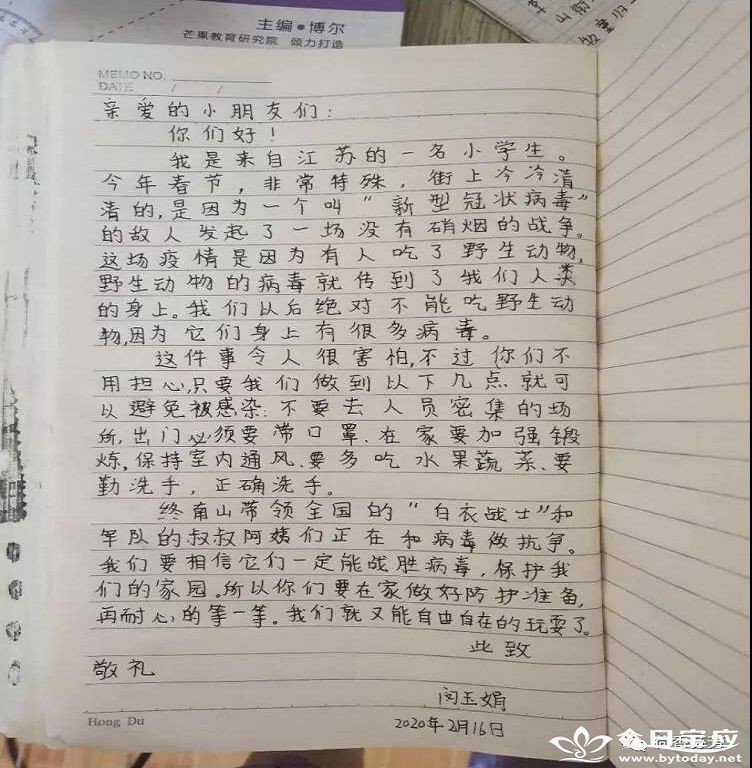 主编•博尔
芒果教育研究院 倾力打造
MEMO NO.
DATE / /
亲爱的小朋友们:
你们好!
我是来自江苏的一名小学生。
今年春节,非常特殊,街上冷冷清
清的,是因为一个叫"新型冠状病毒"
的敌人发起了一场没有硝烟的战争。
这场疫情是因为有人吃了野生动物,
野生动物的病毒就传到了我们人类
的身上。我们以后绝对不能吃野生动
物,因为它们身上有很多病毒。
这件事令人很害怕,不过你们不
用担心,只要我们做到以下几点就可
以避免被感染:不要去人员密集的场
所,出门必须要带口罩、在家要加强锻
炼,保持室内通风、要多吃水果蔬菜、要
勤洗手,正确洗手。
终南山带领全国的"白衣战士"和
军队的叔叔阿姨们正在和病毒做抗争。
我们要相信它们一定能战胜病毒,保护我
们的家园。所以你们要在家做好防护准备,
再耐心的等一等。我们就又能自由自在的玩耍了。
此致
敬礼
闵玉娟
2020年2月16日
Hong Du
今日宝应
www.bytoday.net